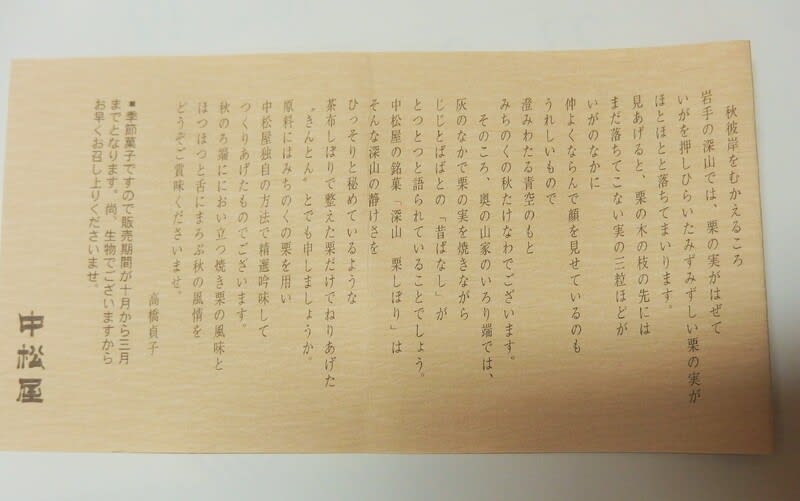 秋彼岸をむかえるころ
岩手の深山では、栗の実がはぜて
いがを押しひらいたみずみずしい栗の実が
ほとほとと落ちてまいります。
見あげると、栗の木の枝の先には
まだ落ちてこない実の三粒ほどが
いがのなかに
仲よくならんで顔を見せているのも
うれしいもので
澄みわたる青空のもと
みちのくの秋たけなわでございます。
そのころ、奥の山家のいろり端では、
灰のなかで栗の実を焼きながら
じじとばばとの「昔ばなし」が
とつとつと語られていることでしょう。
中松屋の銘菓「深山 栗しぼり」は
そんな深山の静けさを
ひっそりと秘めているような
茶布しぼりで整えた栗だけでねりあげた
〝きんとん〟とでも申しましょうか。
原料にはみちのくの栗を用い
中松屋独自の方法で精選吟味して
つくりあげたものでございます。
秋のろ端ににおい立つ焼き栗の風味と
ほつほつと舌にまろぶ秋の風情を
どうぞご賞味くださいませ。
高橋貞子
■季節菓子ですので販売期間が十月から三月
までとなります。尚、生物でございますから
お早くお召し上りくださいませ。
中松屋